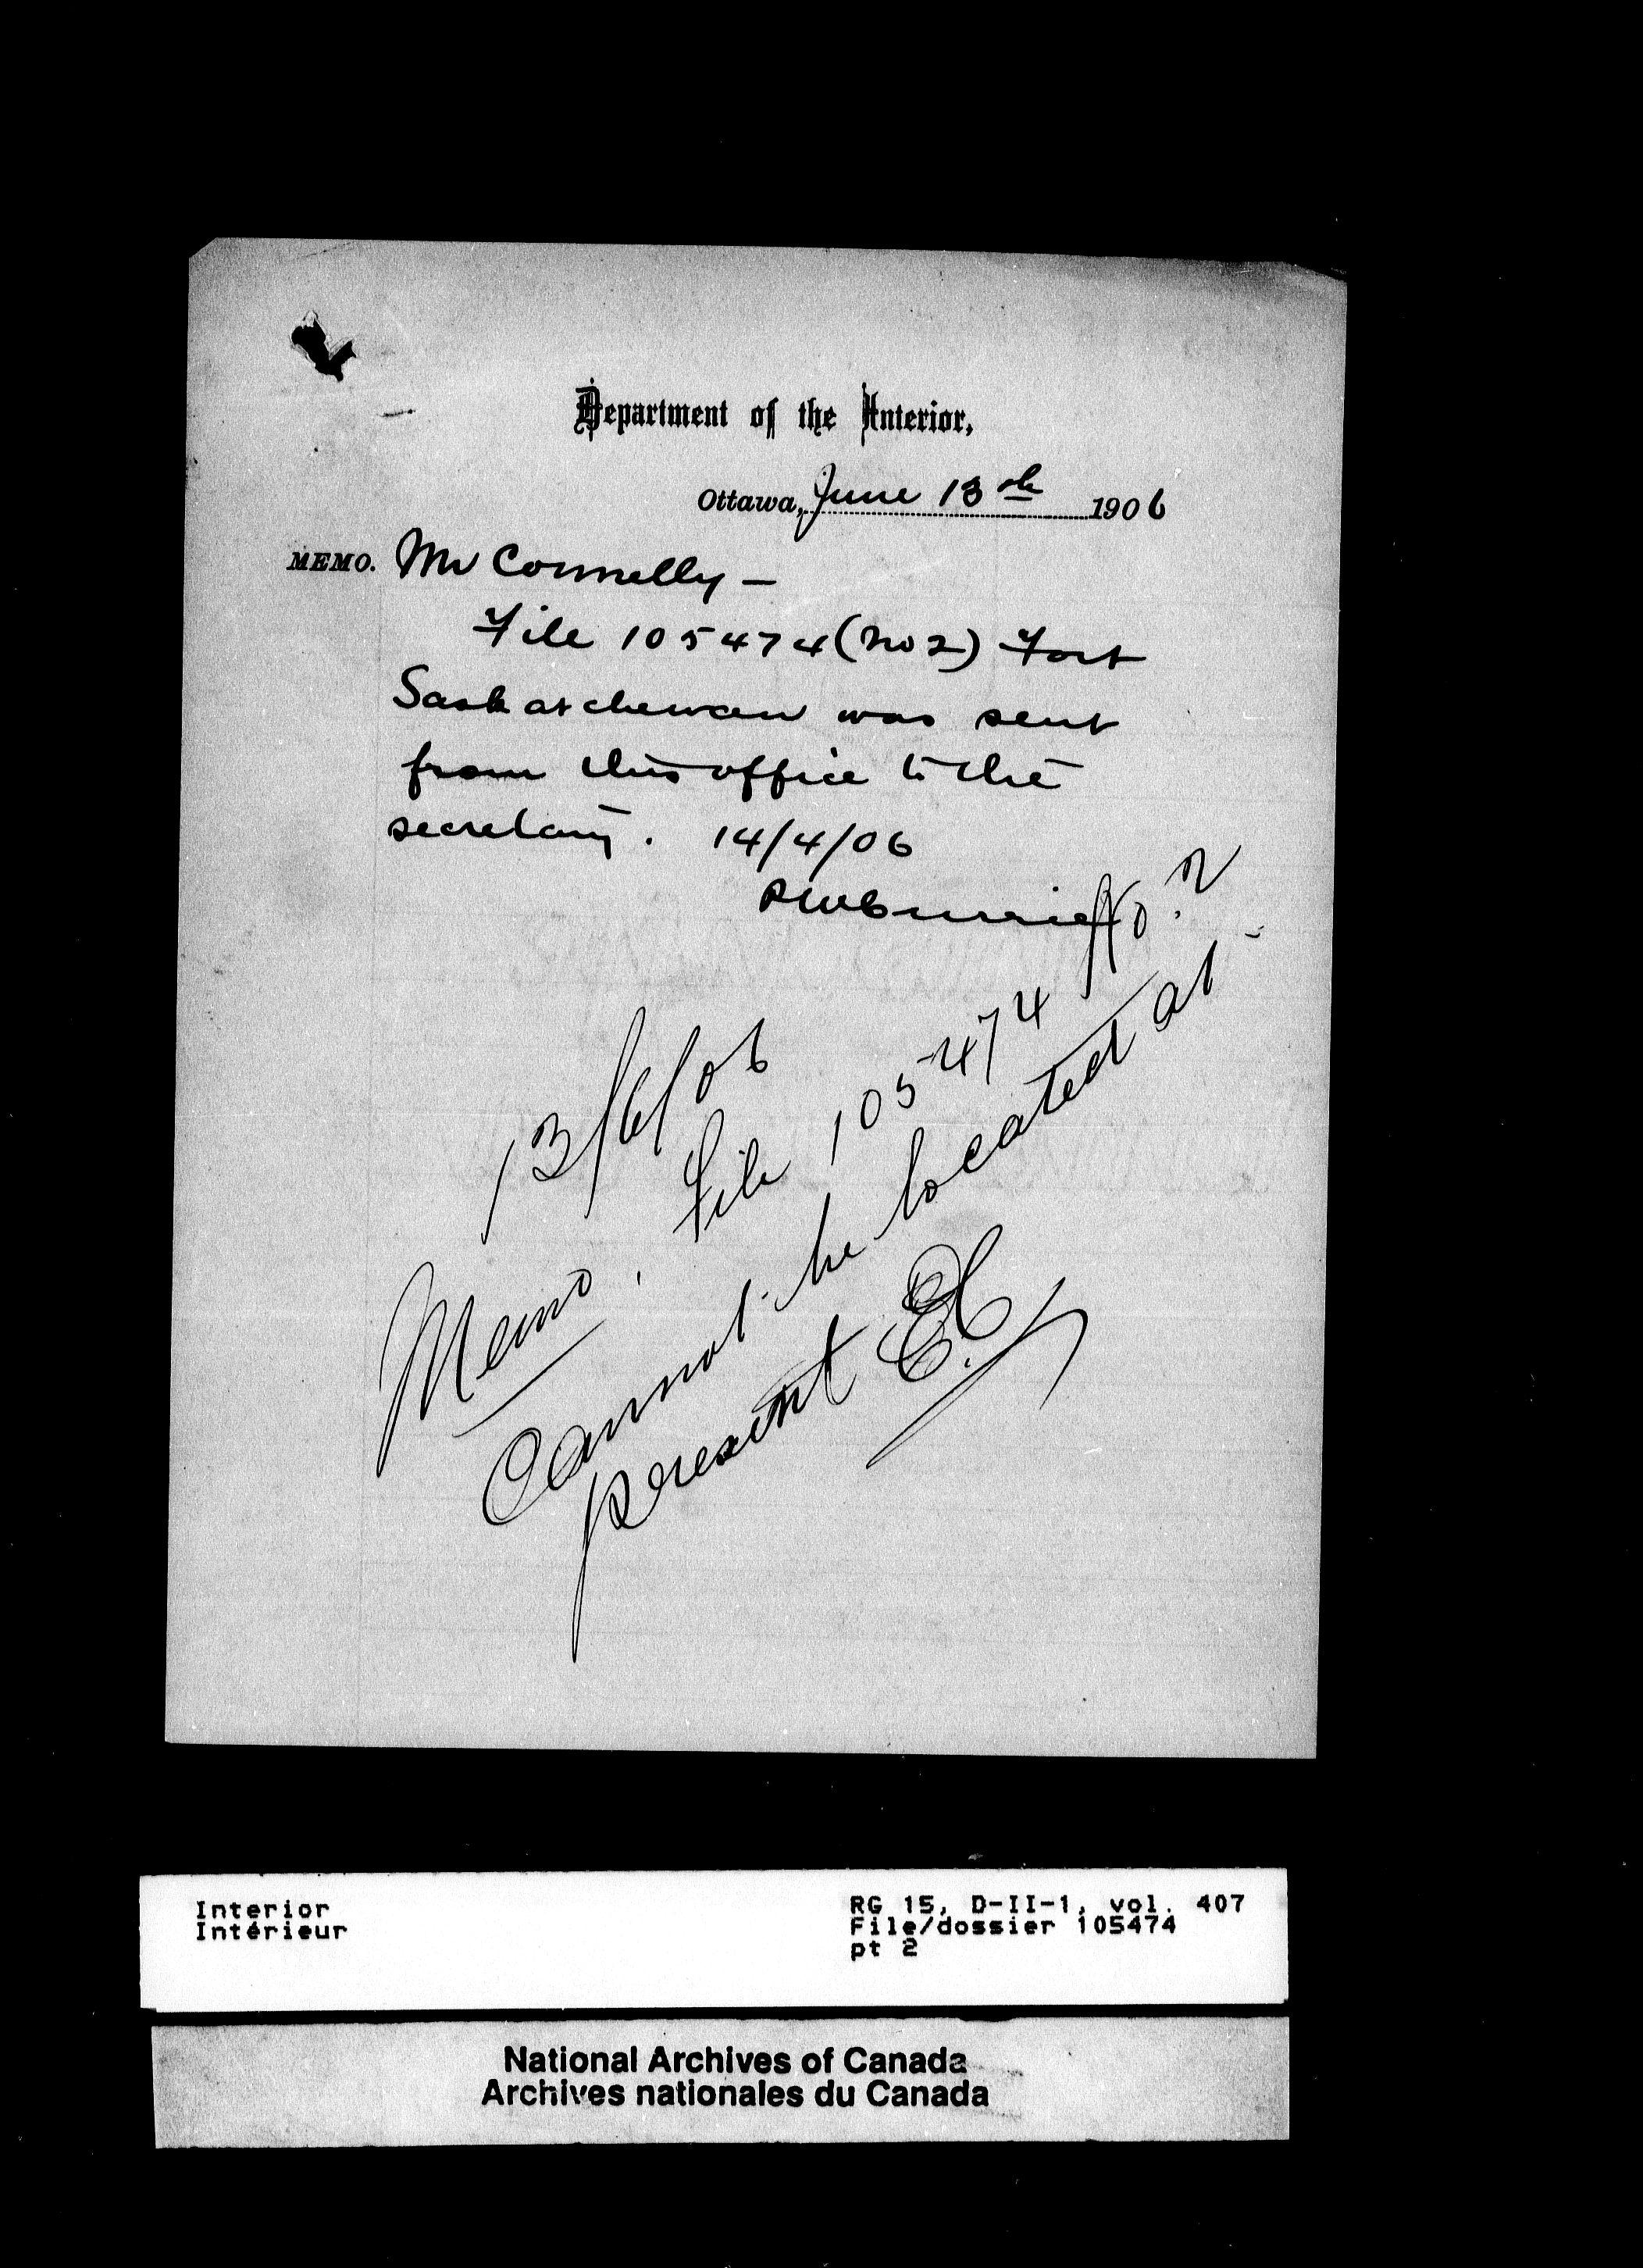 Department of the Interior,
Ottawa, June 13th 1906
MEMO. Mr Connelly -
File 105474 (No 2) Fort
Saskatchewan was sent
from this office to the
secretary. 14/4/06
13/6/06
Memo. File 105474 No. 2
Cannot be located at
present
Interior
Intérieur
RG 15, D-II-1, vol. 407
File/dossier 105474
pt 2
National Archives of Canada
Archives nationales du Canada